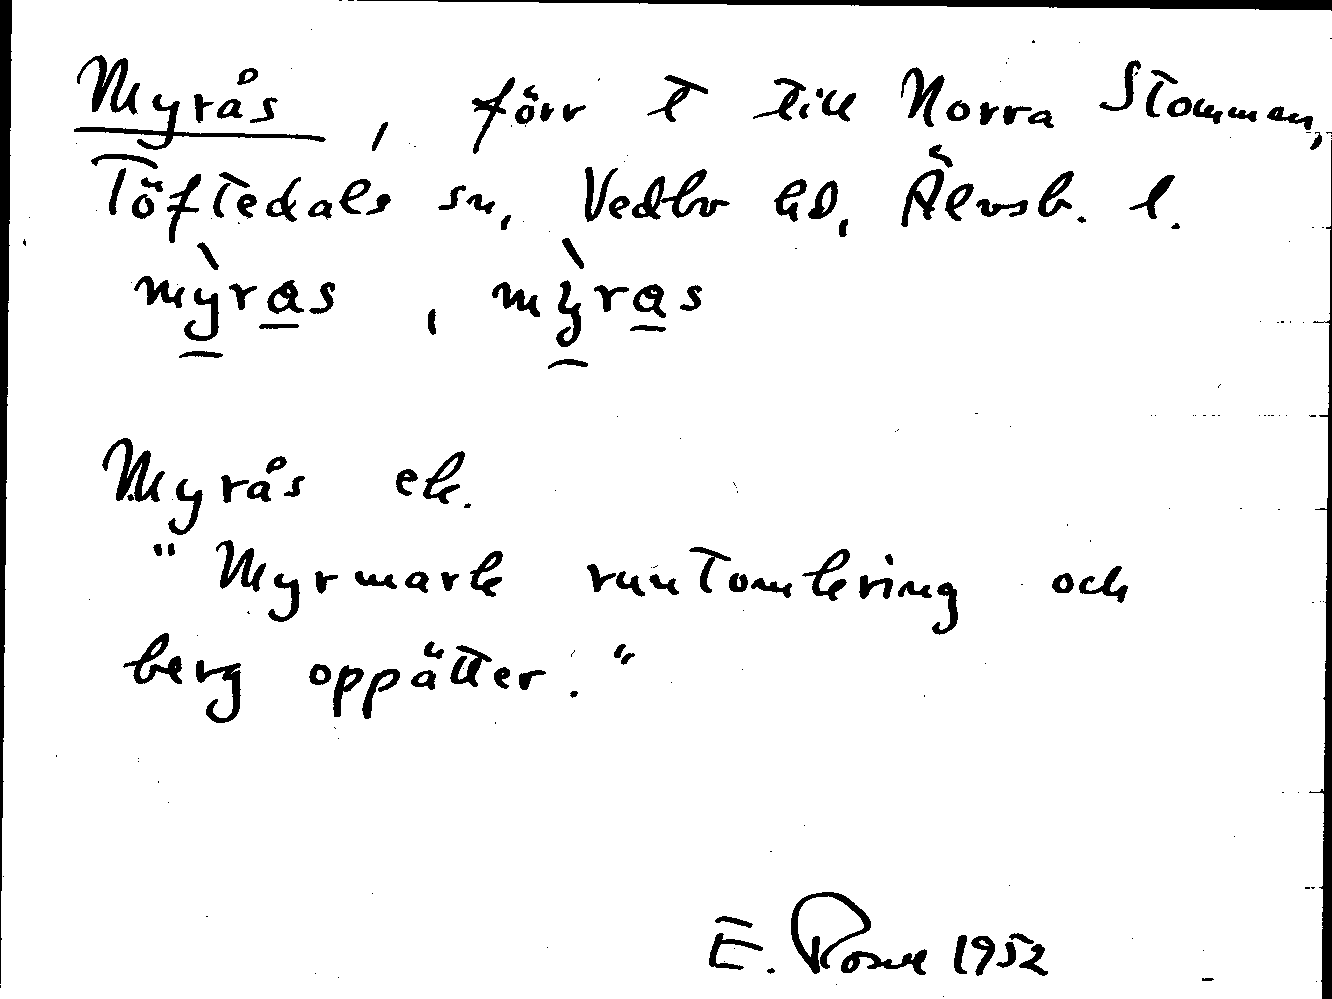 Myrås, förr t till Norra Stommen,
Töftedals sn, Vedbo hd, Älvsb. l.
mỳras, mỳras
Myrås ek.
"Myrmark runtomkring och
berg oppätter."
E. 1952